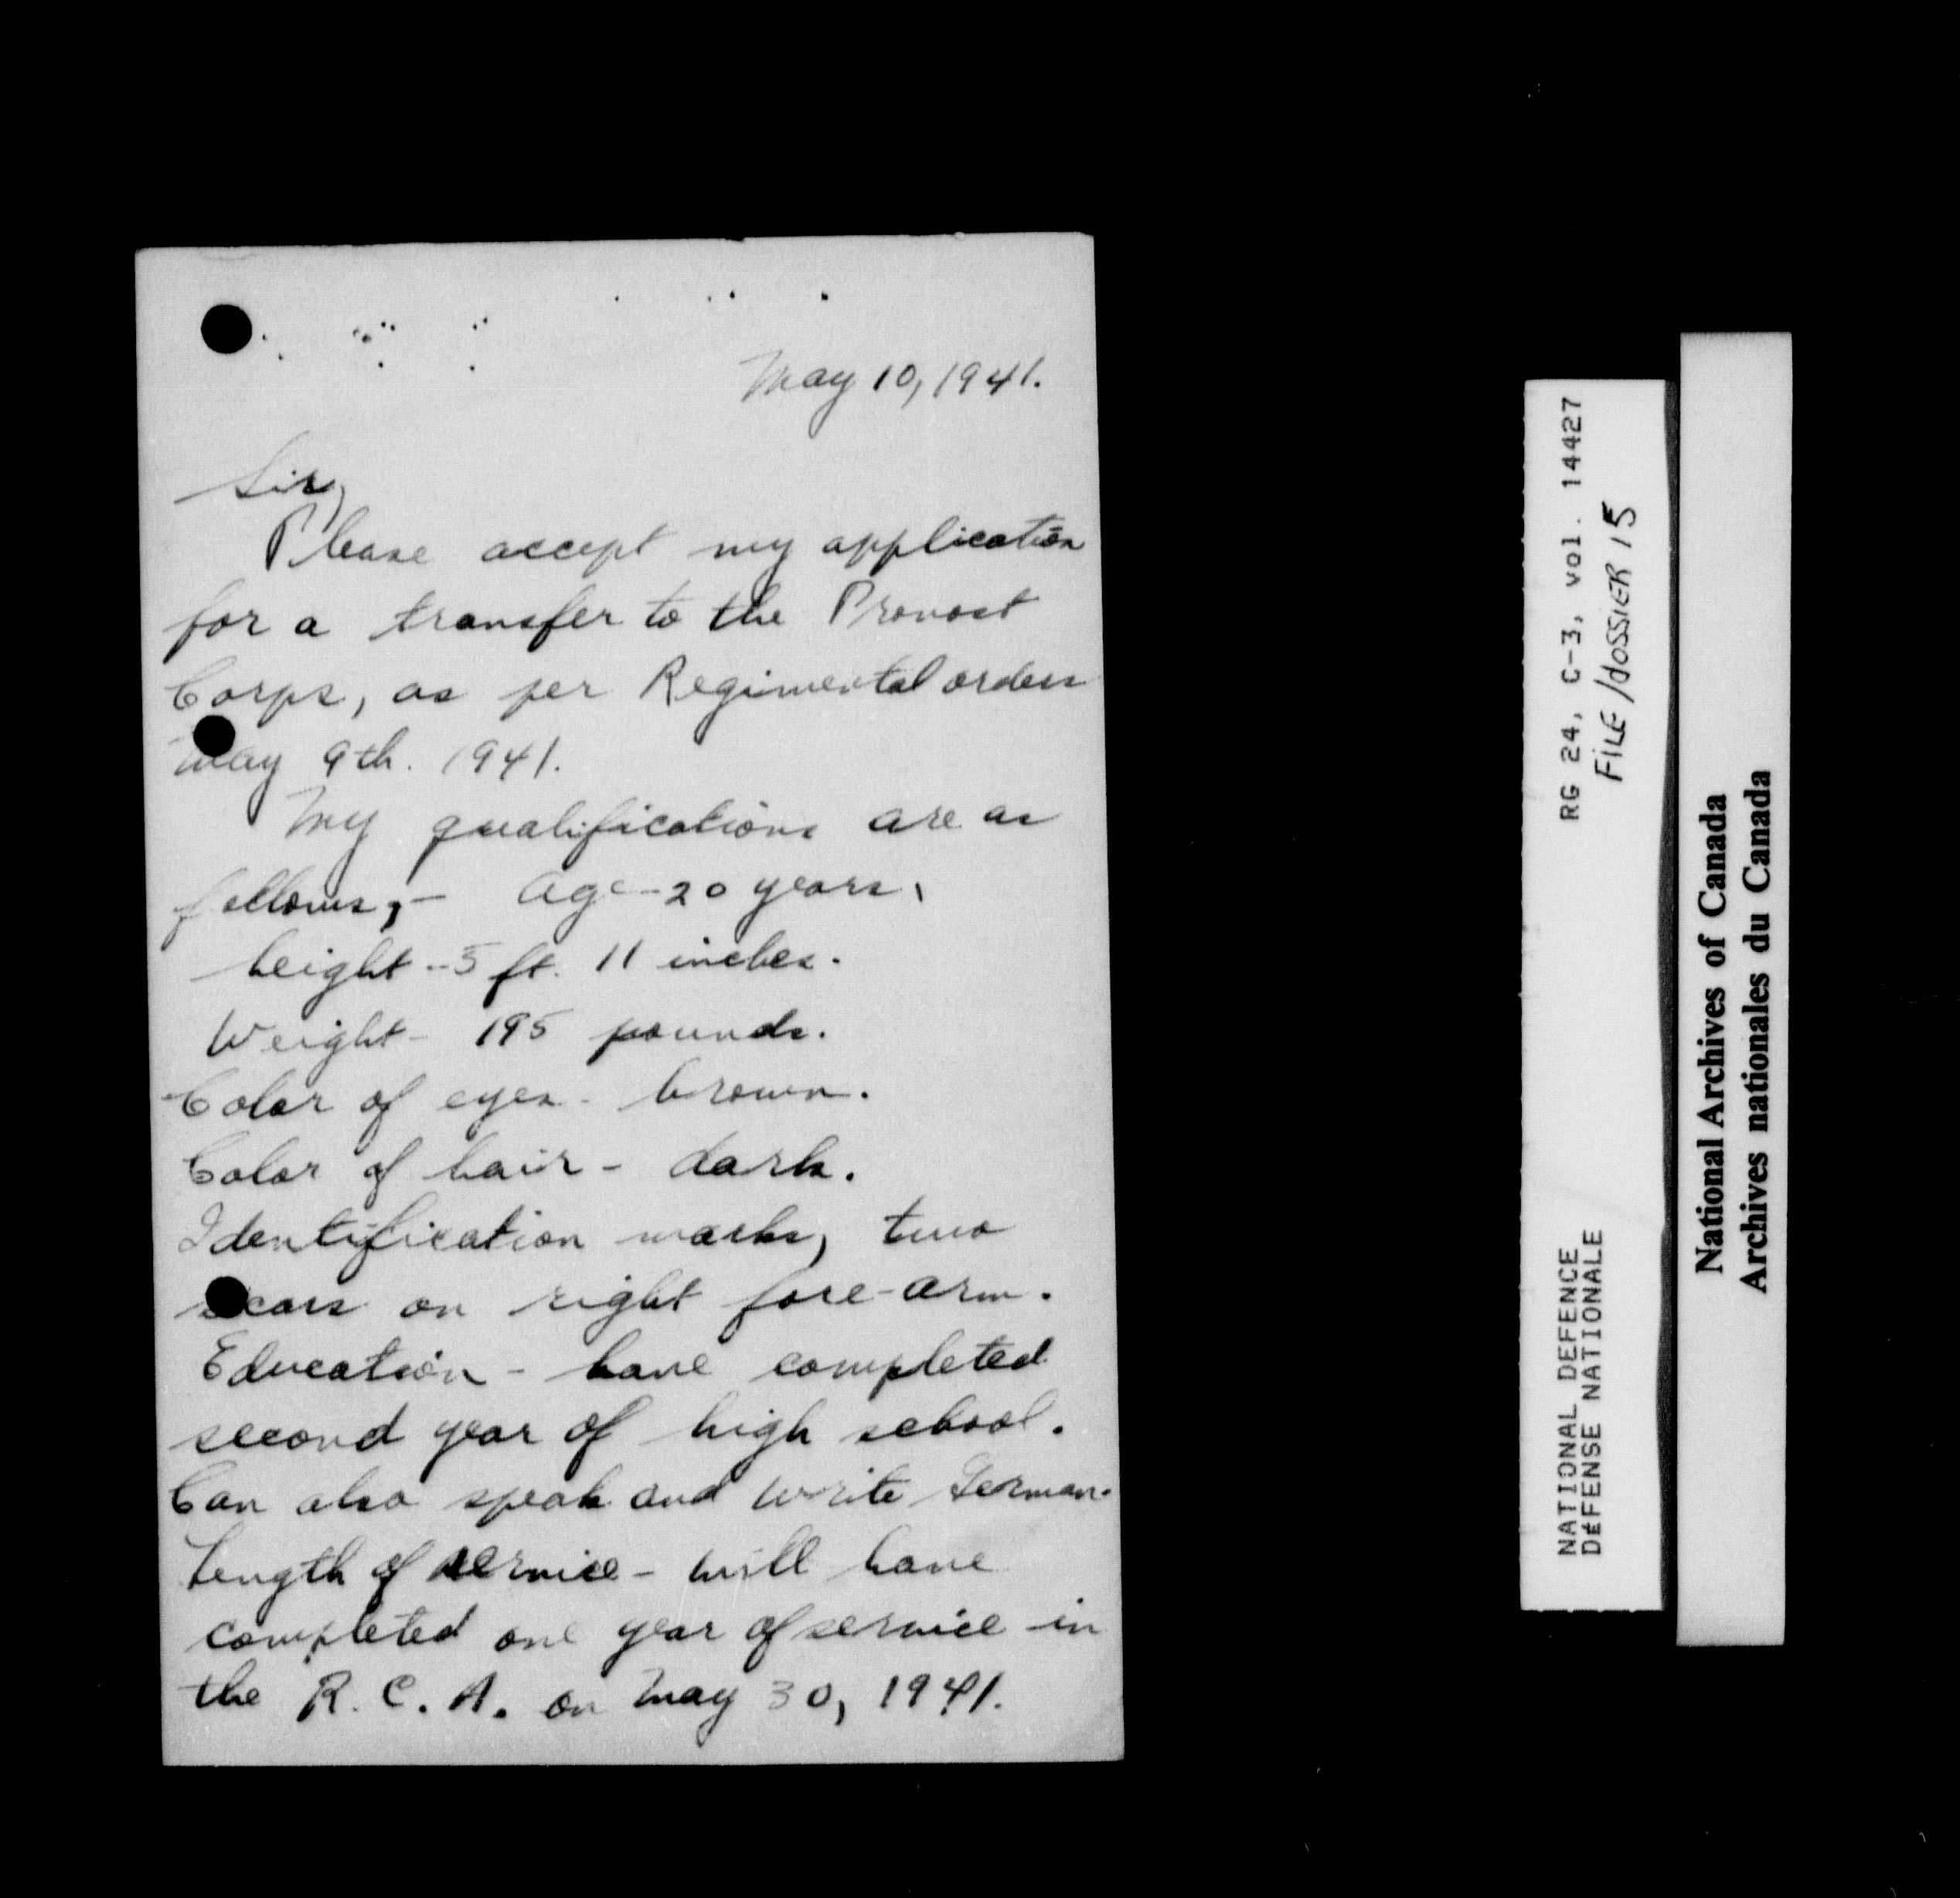 May 10, 1941.
Sir,
Please accept my application
for a transfer to the Provost
Corps, as per Regimental orders
May 9th. 1941.
My qualifications are as
follows,- Age - 20 years.
height - 5 ft. 11 inches.
Weight - 195 pounds.
Color of eyes - brown.
Color of hair - dark.
Identification marks, two
scars on right fore-arm.
Education - have completed
second year of high school.
Can also speak and write German.
Length of service - will have
completed one year of service in
the R.C.A. on May 30, 1941.
RG 24, C-3, vol. 14427
FILE/dOSSiER 15
NATIONAL DEFENCE
DéFENSE NATIONALE
National Archives of Canada
Archives nationales du Canada